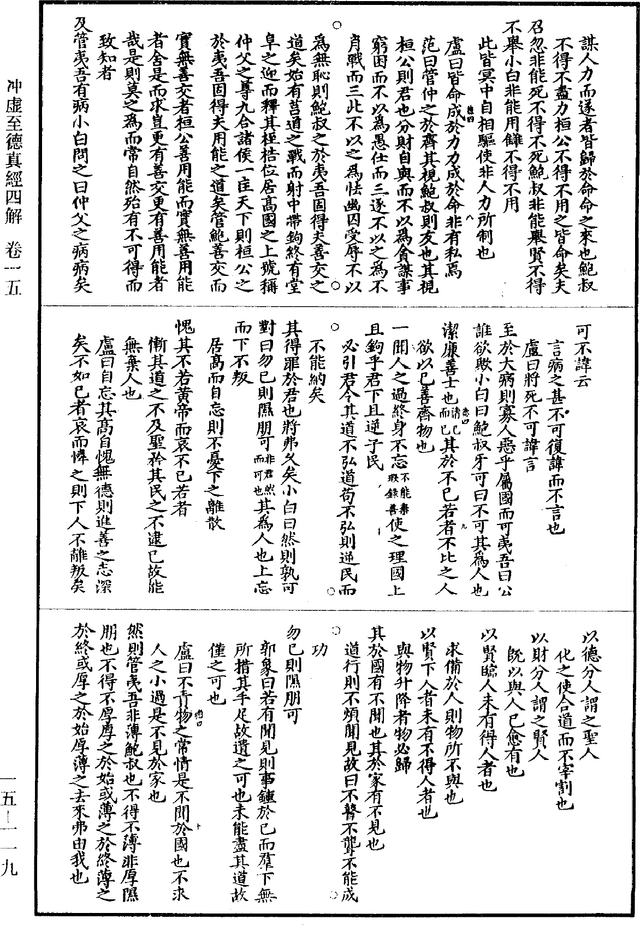 謀人力而遂者皆歸於命命之來也鮑叔
不得不盡力桓公不得不用之皆命矣夫
召忽非能死不得不死鮑叔非能舉賢不得
不舉小白非能用讎不得不用
此皆冥中自相驅使非人力所制也
盧曰皆命成於力力成於命非有私焉
范曰管仲之於齊其視鮑叔則友也其視
桓公則君也分財自與而不以為貪謀事
窮困而不以為愚仕而三逐不以之為不
肖戰而三北不以之為怯幽囚受辱不以
為無恥則鮑叔之於夷吾固得夫善交之
道矣始有莒道之戰而射中帶鉤終有堂
阜之迎而釋其桎梏位居高國之上號稱
仲父之尊九合諸侯一匡天下則桓公之
於夷吾固得夫用能之道矣管鮑善交而
實無善交者桓公善用能而實無善用能
者舍是而求豈更有善交更有善用能者
哉是則莫之為而常自然殆有不可得而
致知者
及管夷吾有病小白問之曰仲父之病病矣
可不諱云
言病之甚不可復諱而不言也
盧曰將死不可諱言
至於大病則寡人惡乎屬國而可夷吾曰公
誰欲歟小白曰鮑叔牙可曰不可其為人也
潔廉善士也清己而已其於不已若者不比之人
欲以己善齊物也
一聞人之過終身不忘不能棄瑕錄善使之理國上
且鉤乎君下且逆乎民
必引君令其道不弘道苟不弘則逆民而
不能納矣
其得罪於君也將弗久矣小白曰然則孰可
對曰勿已則隰朋可非君然而可也其為人也上忘
而下不叛
居高而自忘則不憂下之離散
愧其不若黃帝而哀不已若者
慚其道之不及聖矜其民之不逮己故能
無棄人也
盧曰自忘其高自愧無德則進善之志深
矣不如已者哀而憐之則下人不離叛矣
以德分人謂之聖人
化之使合道而不宰割也
以財分人謂之賢人
既以與人己愈有也
以賢臨人未有得人者也
求備於人則物所不與也
以賢下人者未有不得人者也
與物升降者物必歸
其於國有不聞也其於家有不見也
道行則不煩聞見故曰不瞽不聾不能成
功
勿已則隰朋可
郭象曰若有聞見則事鍾於己而羣下無
所措其手足故遺之可也未能盡其道故
僅之可也
盧曰不責物之常情是不聞於國也不求
人之小過是不見於家也
然則管夷吾非薄鮑叔也不得不薄非厚隰
朋也不得不厚厚之於始或薄之於終薄之
於終或厚之於始厚薄之去來弗由我也
冲虛至德真經四解 卷一五
一五—一一九